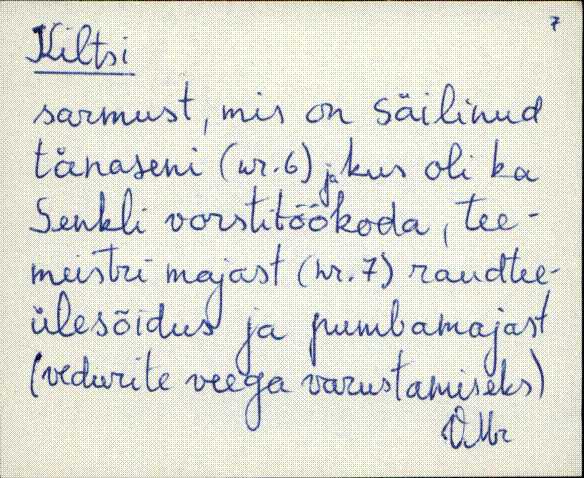 7
Kiltsi
sarmust, mis on säilinud
tänaseni (nr. 6) ja kus oli ka
Senkli vorstitöökoda, tee-
meistri majast (nr. 7) raudtee-
ülesõidus ja pumbamajast
(vedurite veega varustamiseks)